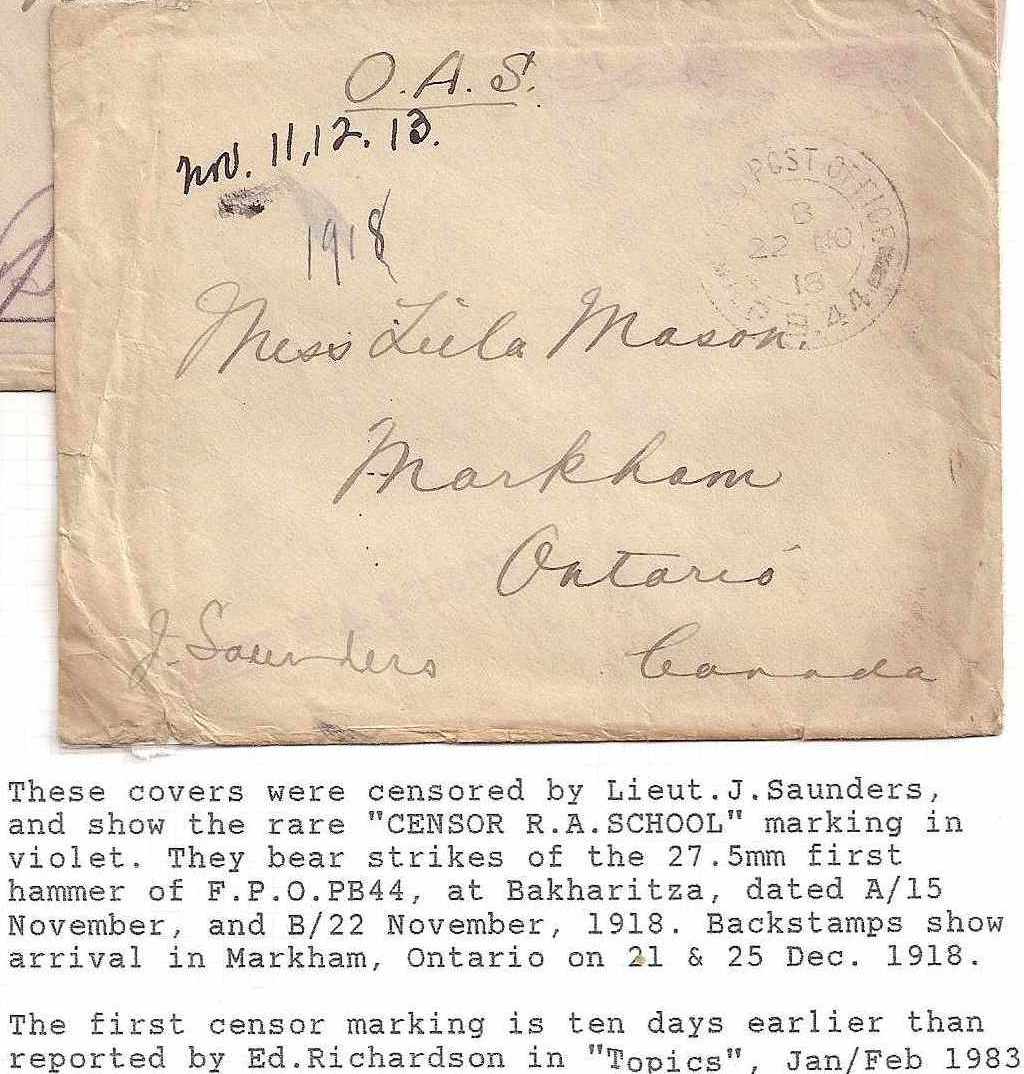 O.A.S.
Nov. 11, 12. 13.
1918
POST OFFICE
B
22 NO
18
B.44
Miss Lula Mason.
Markham
Ontario
J. Saunders
Canada
These covers were censored by Lieut.J.Saunders,
and show the rare "CENSOR R.A.SCHOOL" marking in
violet. They bear strikes of the 27.5mm first
hammer of F.P.O.PB44, at Bakharitza, dated A/15
November, and B/22 November, 1918. Backstamps show
arrival in Markham, Ontario on 21 & 25 Dec. 1918.
The first censor marking is ten days earlier than
reported by Ed.Richardson in "Topics", Jan/Feb 1983